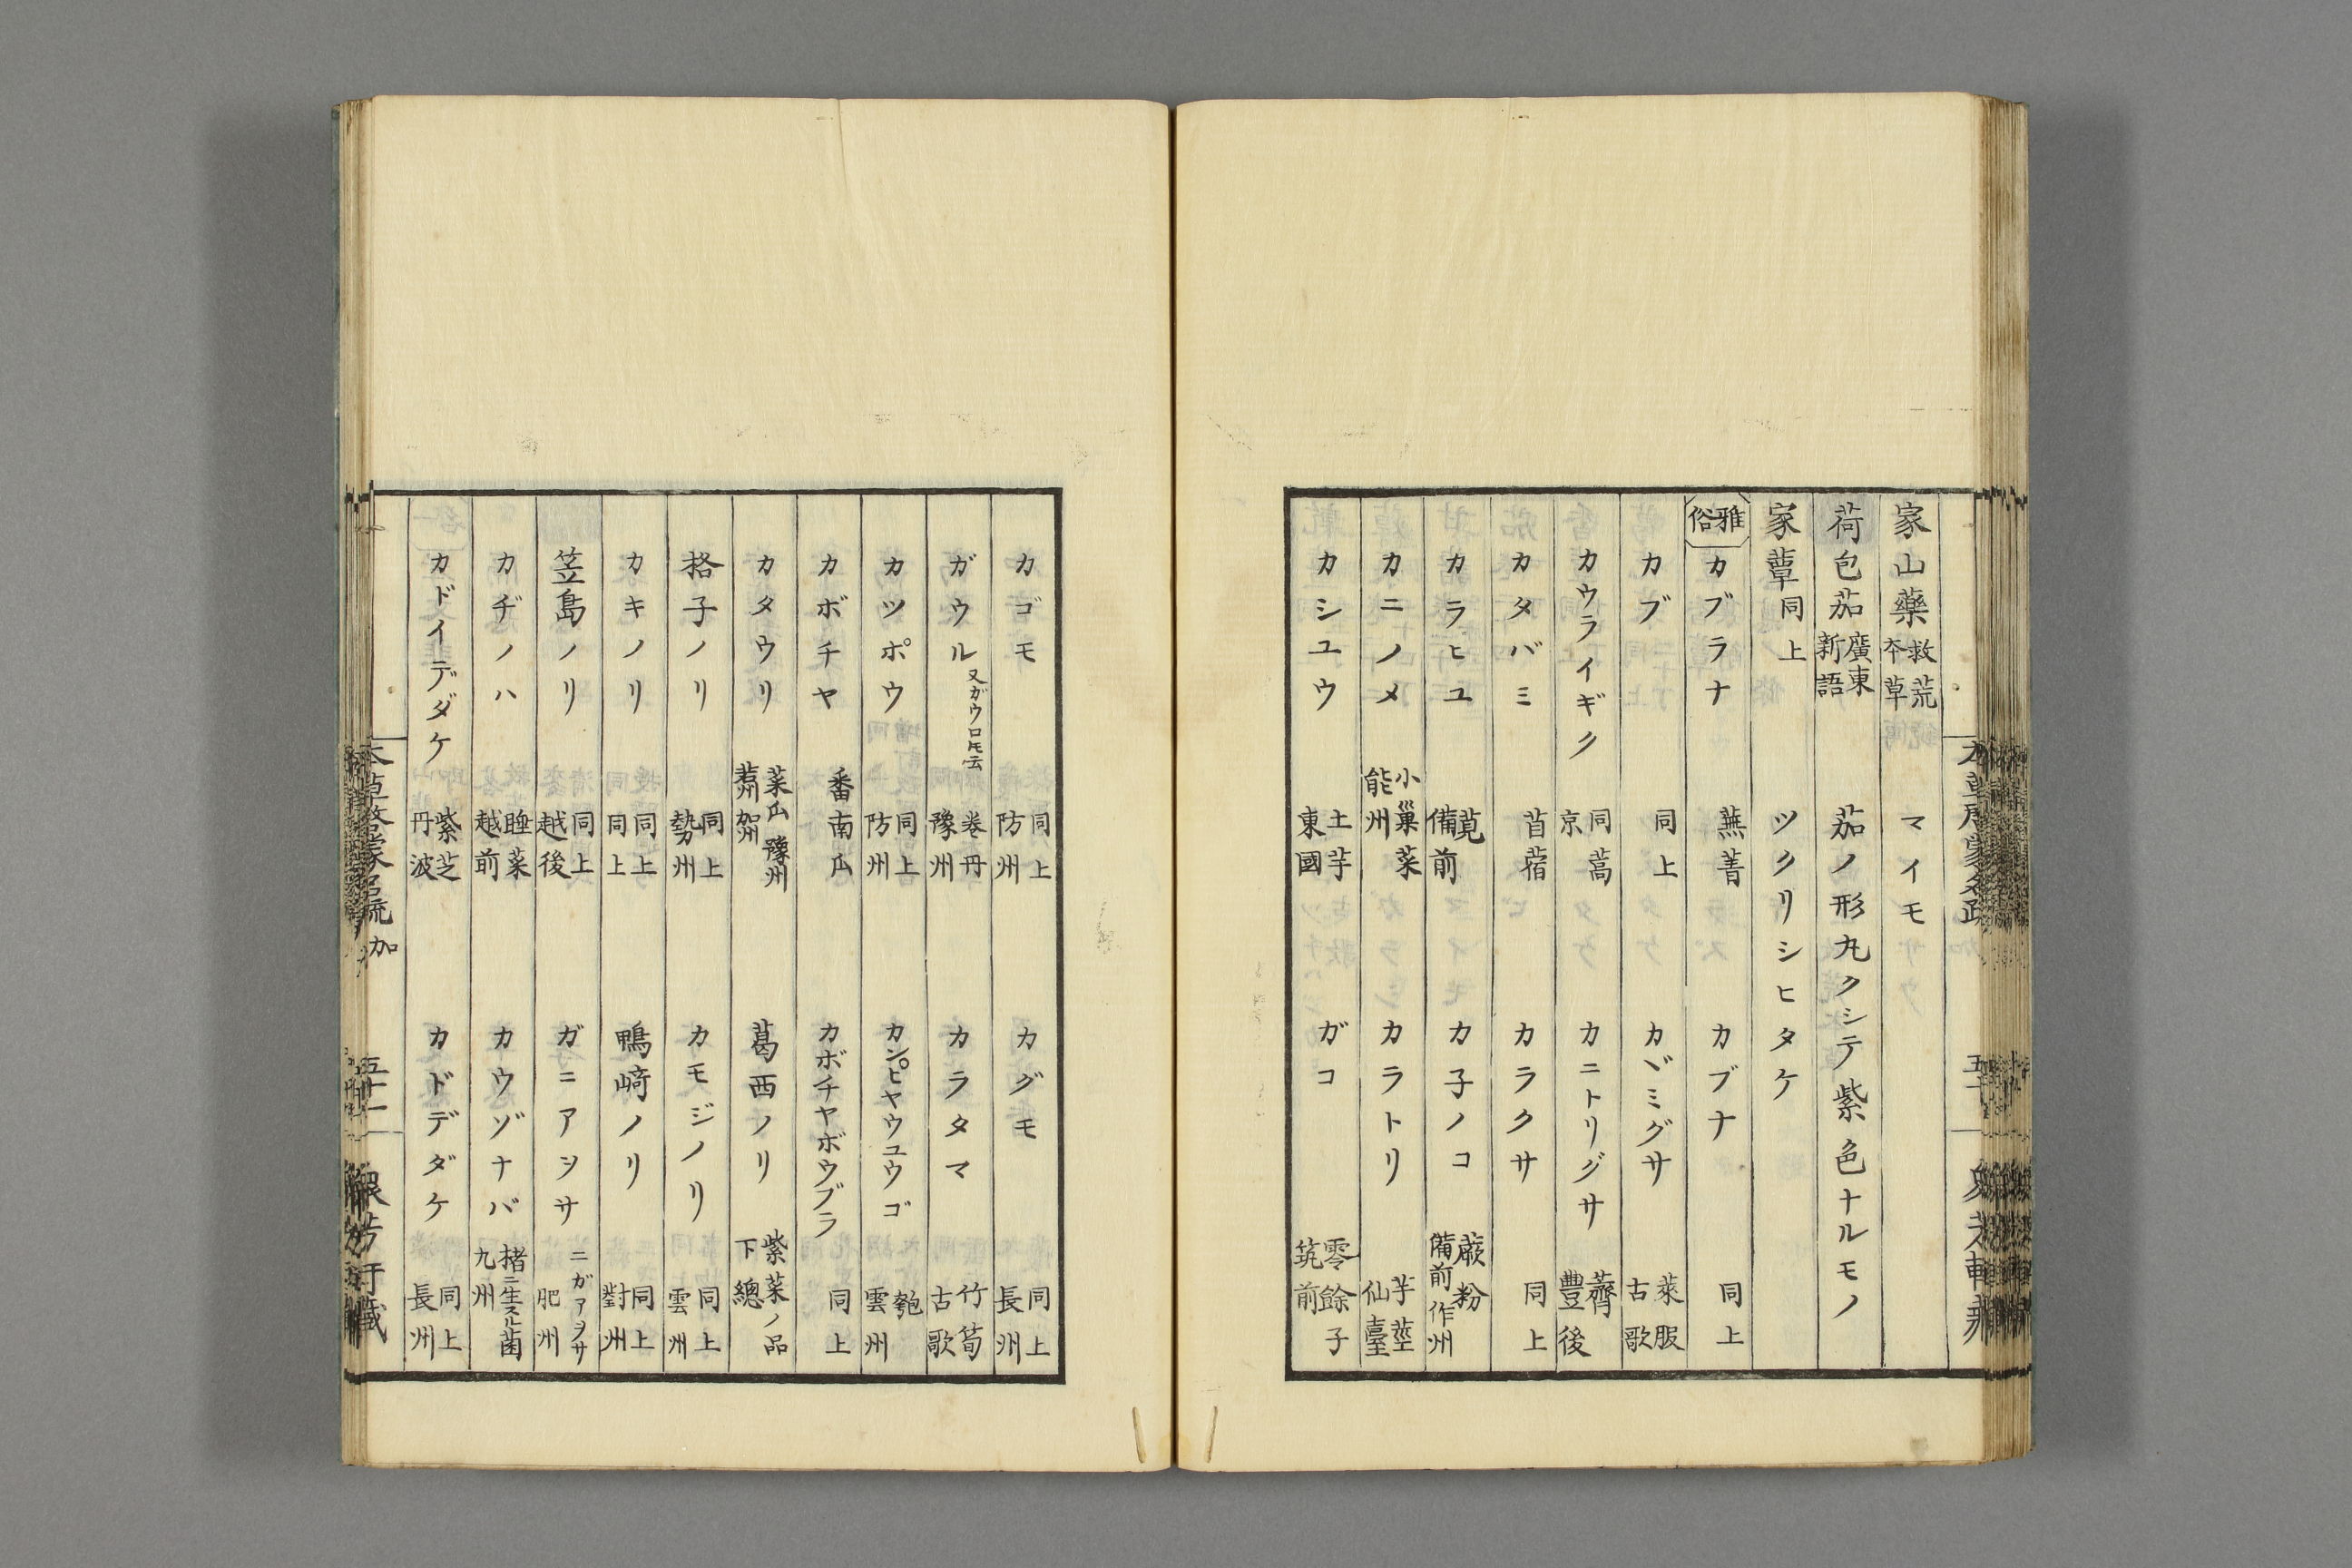 家山藥 救荒本草 マイモ
荷包茄 廣東新語 茄ノ形丸クシテ紫色ナルモノ
家蕈 同上 ツクリシヒタケ
雅俗 カブラナ 蕪菁 カブナ 同上
カブ 同上 カヾミグサ 萊服 古歌
カウライギク 同蒿 京 カニトリグサ 薺 豊後
カタバミ 苜蓿 カラクサ 同上
カラヒユ 莧 備前 カ子ノコ 蕨粉 備前 作州
カニノメ 小巢菜 能州 カラトリ 芋莖 仙臺
カシユウ 土芋 東國 ガコ 零餘子 筑前
カゴモ 同上 防州 カグモ 同上 長州
ガウル 又ガウロ𪜈云 卷丹 豫州 カラタマ 竹筍 古歌
カツポウ 同上 防州 カンピヤウユウゴ 匏 雲州
カボチヤ 番南瓜 カボチヤボウブラ 同上
カタウリ 菜瓜 豫州 藝州 賀州 葛西ノリ 紫菜ノ品 下總
格子ノリ 同上 勢州 カモジノリ 同上 雲州
カキノリ 同上 同上 鴨﨑ノリ 同上 對州
笠島ノリ 同上 越後 ガニアヲサ ニガアヲサ 肥州
カヂノハ 睡菜 越前 カウゾナバ 楮ニ生スル菌 九州
カドイデダケ 紫芝 丹波 カドデダケ 同上 長州
本草啓蒙名疏 加 五十一